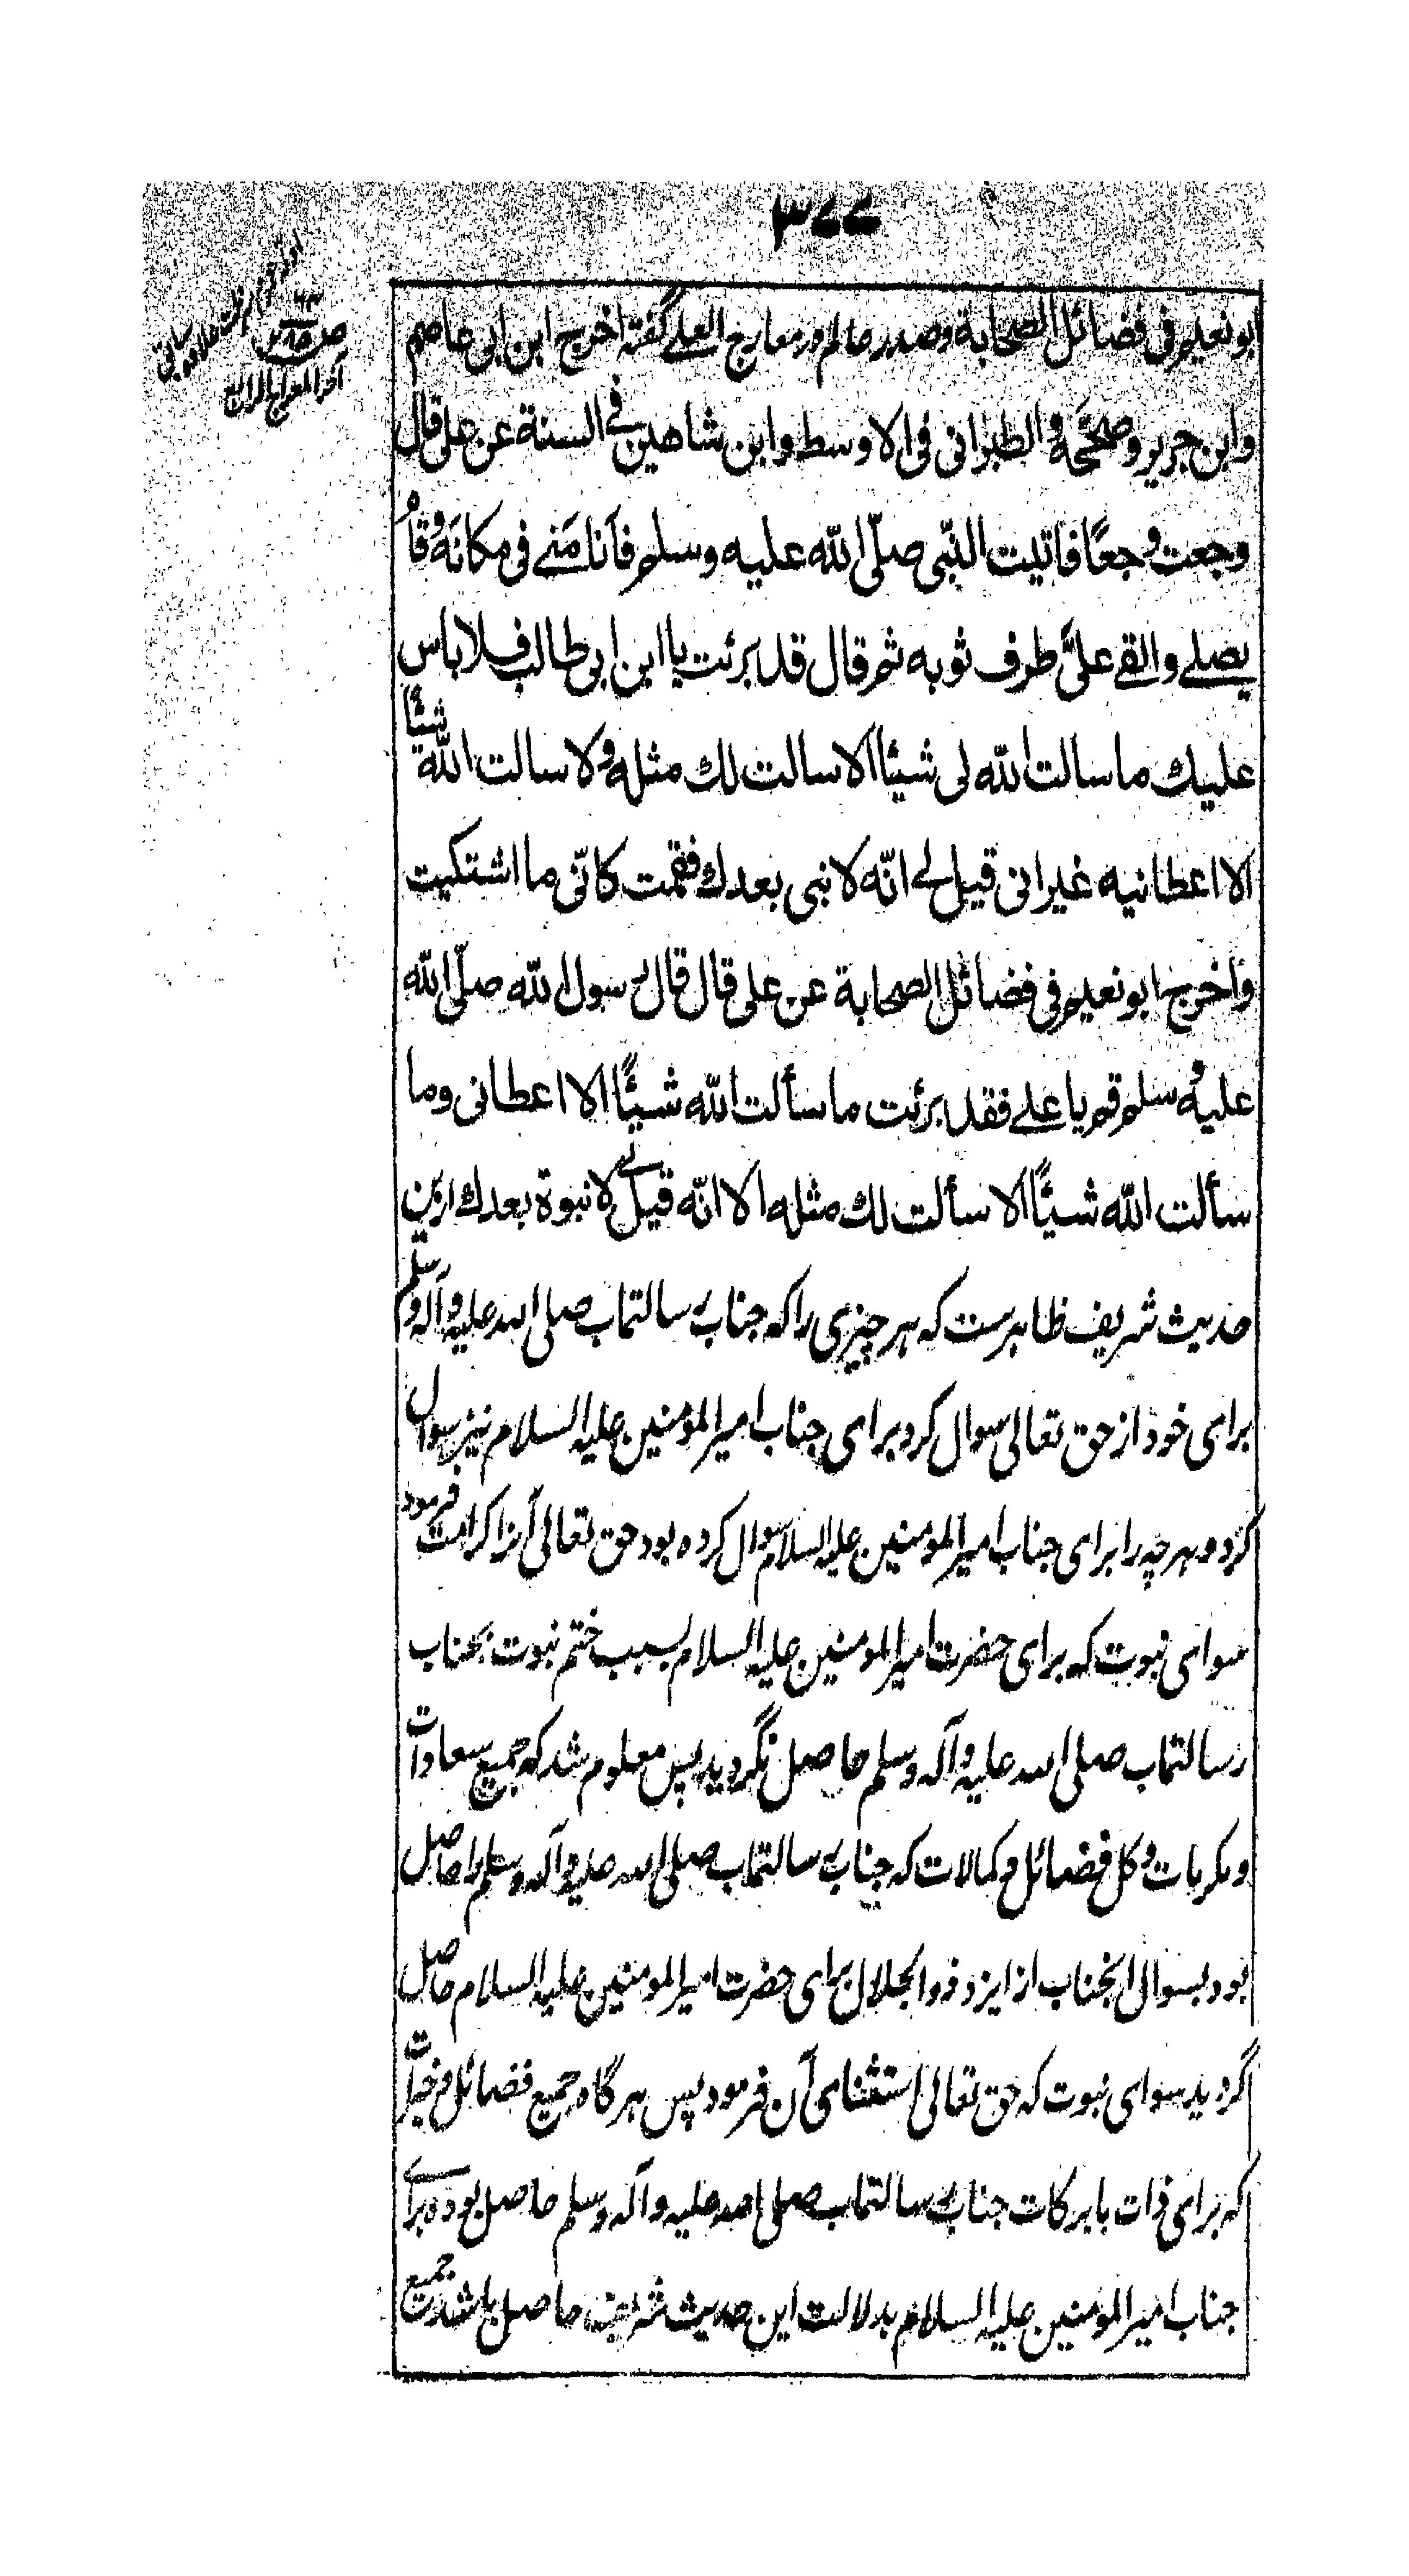 ٣٧٧
ابو نعيم فى فضائل الصحابة وصدر عالم در معارج العلے گفته اخرج ابن ابى عاصم
وابن جرير وصححه والطبرانى فى الاوسط وابن شاهين فے السنة عن على قال
وجعت وجعًا فاتيت النّبى صلّى الله عليه وسلم فأنامَنے فى مكانه وقام
يصلے والقے علىَّ طرف ثوبه ثم قال قد برئت يا ابن ابى طالب فلا باس
عليك ما سالت الله لى شيئًا الا سالت لك مثله ولا سالت الله شيئًا
الا اعطانيه غير انى قيل لے انّه لا نبى بعدك فقمت كانّى ما اشتكيت
واخرج ابو نعيم فى فضائل الصحابة عن على قال قال رسول الله صلّى الله
عليه وسلم قم يا علے فقد برئت ما سألت الله شيئًا الا اعطانى وما
سألت الله شيئًا الا سألت لك مثله الا انّه قيل لے لا نبوة بعدك ازين
حديث شريف ظاهرست كه هر چيزى را كه جناب رسالتماب صلى الله عليه وآله وسلم
براى خود از حق تعالى سوال كرد براى جناب امير المؤمنين عليه السلام نيز سوال
كرد و هر چه را براى جناب امير المومنين عليه السلام سوال كرده بود حق تعالى آنرا كرامت فرمود
سواى نبوت كه براى حضرت امير المومنين عليه السلام بسبب ختم نبوت بجناب
رسالتماب صلى الله عليه وآله وسلم حاصل نگرديد پس معلوم شد كه جميع سعادات
و مكرمات و كل فضائل و كمالات كه جناب رسالتماب صلى الله عليه وآله وسلم را حاصل
بود بسوال آنجناب از ايزد ذو الجلال براى حضرت امير المومنين عليه السلام حاصل
گرديد سواى نبوت كه حق تعالى استثناى آن فرمود پس هر گاه جميع فضائل و خيرات
كه براى ذات بابركات جناب رسالتماب صلى الله عليه وآله وسلم حاصل بوده براے
جناب امير المومنين عليه السلام بدلالت اين حديث شريف حاصل باشد جميع